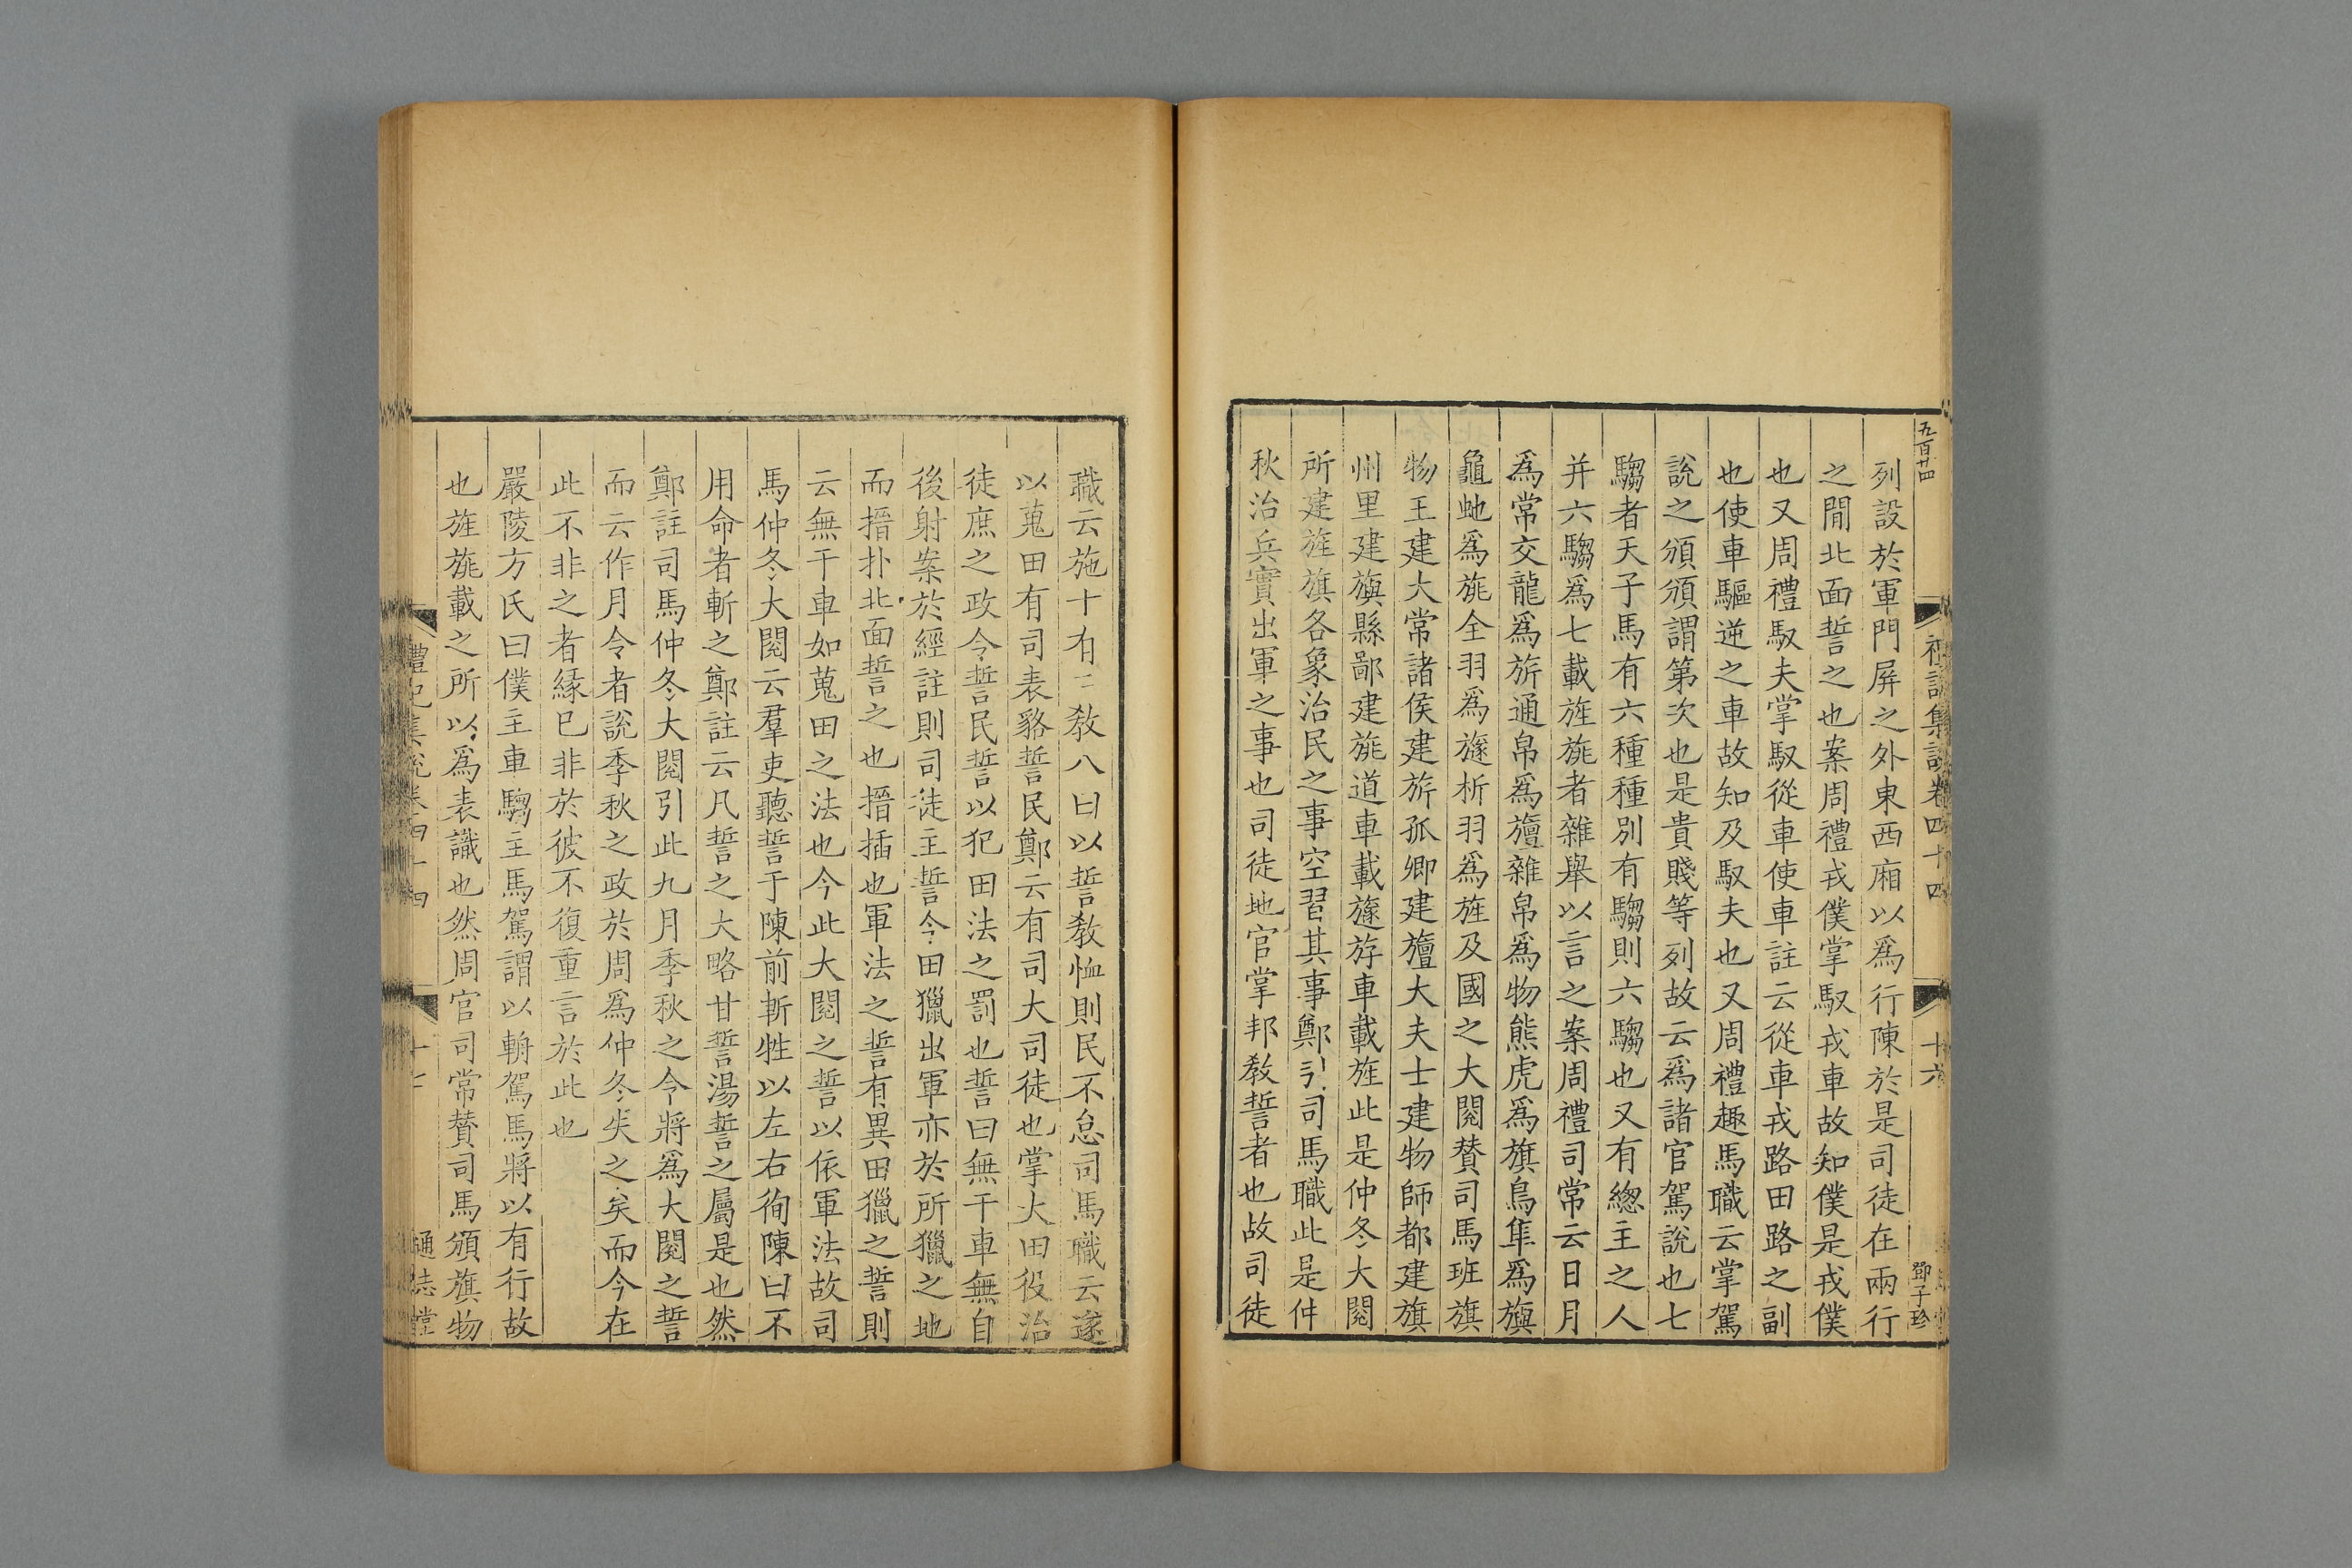 五百廿四
禮記集說卷四十四
十六
鄧子珍
列設於軍門屏之外東西廂以爲行陳於是司徒在兩行
之閒北面誓之也案周禮戎僕掌馭戎車故知僕是戎僕
也又周禮馭夫掌馭從車使車註云從車戎路田路之副
也使車驅逆之車故知及馭夫也又周禮趣馬職云掌駕
說之頒頒謂第次也是貴賤等列故云爲諸官駕說也七
騶者天子馬有六種種別有騶則六騶也又有緫主之人
并六騶爲七載旌旐者雜舉以言之案周禮司常云日月
爲常交龍爲旂通帛爲旜雜帛爲物熊虎爲旗鳥隼爲旟
龜虵爲旐全羽爲旞析羽爲旌及國之大閱賛司馬班旗
物王建大常諸侯建旂孤卿建旜大夫士建物師都建旗
州里建旟縣鄙建旐道車載旞斿車載旌此是仲冬大閱
所建旌旗各象治民之事空習其事鄭引司馬職此是仲
秋治兵實出軍之事也司徒地官掌邦教誓者也故司徒
職云施十有二教八曰以誓教恤則民不怠司馬職云遂
以蒐田有司表貉誓民鄭云有司大司徒也掌大田役治
徒庶之政令誓民誓以犯田法之罰也誓曰無干車無自
後射案於經註則司徒主誓令田獵出軍亦於所獵之地
而搢扑北面誓之也搢插也軍法之誓有異田獵之誓則
云無干車如蒐田之法也今此大閱之誓以依軍法故司
馬仲冬大閱云羣吏聽誓于陳前斬牲以左右徇陳曰不
用命者斬之鄭註云凡誓之大略甘誓湯誓之屬是也然
鄭註司馬仲冬大閱引此九月季秋之令將爲大閱之誓
而云作月令者說季秋之政於周爲仲冬失之矣而今在
此不非之者緣已非於彼不復重言於此也
嚴陵方氏曰僕主車騶主馬駕謂以輈駕馬將以有行故
也旌旐載之所以爲表識也然周官司常賛司馬頒旗物
禮記集說卷四十四
十七
通志堂